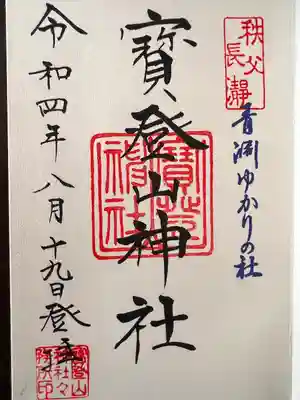 秩父
長瀞
青淵ゆかりの社
寶登山神社
寶登山神社
令和四年八月十九日登拝
寶登山
神社々
務所印